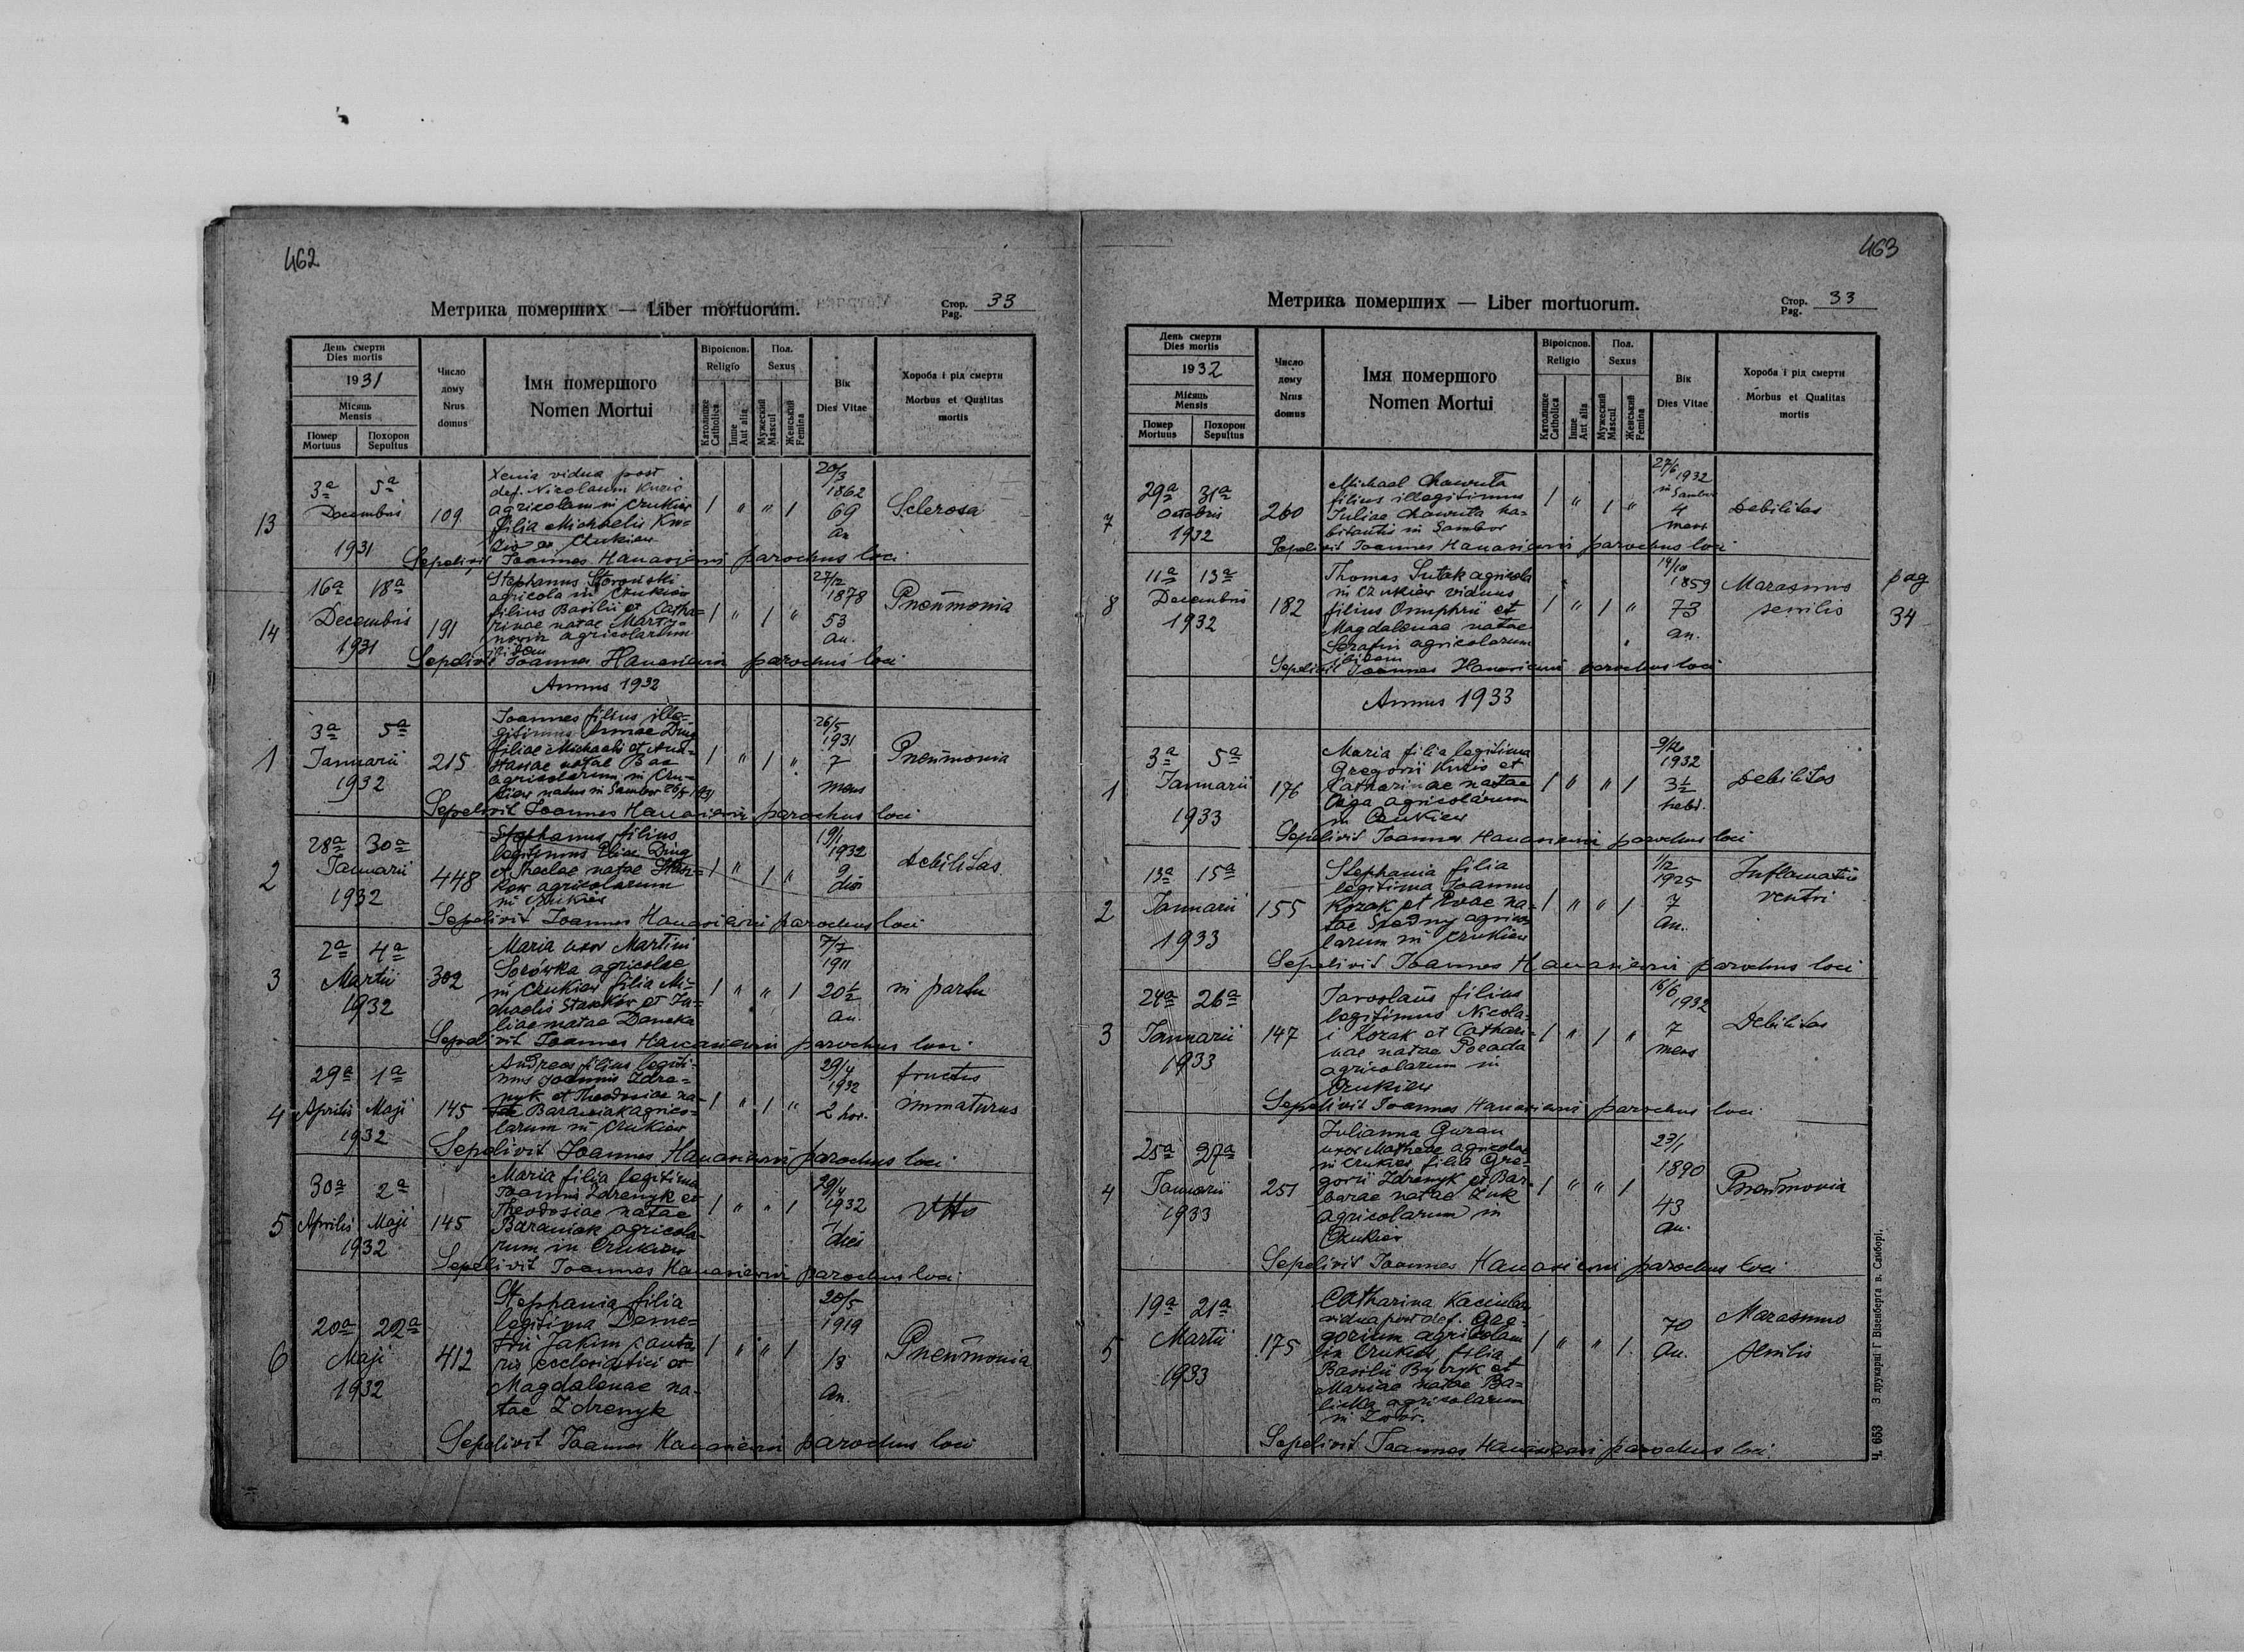 462
Метрика померших — Liber mortuorum.
Стор. 33
Pag.
День смерти
Dies mortis
1931
Місяць
Mensis
Помер
Mortuus
Похорон
Sepultus
Число
дому
Nrus
domus
Імя помершого
Nomen Mortui
Віроіспов.
Religio
Католицке
Catholica
Інше
Aut alia
Пол.
Sexus
Мужеский
Mascul
Женський
Femina
Вік
Dies Vitae
Хороба і рід смерти
Morbus et Qualitas
mortis
13
3a 5a
Decembris
1931
109
Xenia vidua post
def. Nicolaum Kuzio
agricolam in Czukiew
filia Michaelis Ku=
zio ex Czukiew
1 " " 1
20/3
1862
69
an
Sclerosa
Sepelivit Joannes parochus loci
14
16a 18a
Decembris
1931
191
Stephanus
agricola in Czukiew
filius Basilii et Catha=
rinae natae Marty=
nowin agricolarum
ibidem
1 " 1 "
27/12
1878
53
an.
Pneumonia
Sepelivit Joannes parochus loci
Annus 1932
1
3a 5a
Januarii
1932
215
Joannes filius ille=
gitimus Annae Ding
filiae Michaelis et Anas=
tasiae natae
agricolarum in Czu=
kiew natus in Sambor 26/5 1931
1 " 1 "
26/5
1931
7
mens
Pneumonia
Sepelivit Joannes parochus loci
2
28a 30a
Januarii
1932
448
Stephanus filius
legitimus Eliae Ding
et Theclae natae
agricolarum
in Czukiew
1 " 1 "
19/1
1932
9
dies
debilitas
Sepelivit Joannes parochus loci
3
2a 4a
Martii
1932
302
Maria uxor Martini
Sorówka agricolae
in Czukiew filia Mi=
chaelis Stanków et Ju=
liae natae Daneka
1 " " 1
7/7
1911
20½
an.
in partu
Sepelivit Joannes parochus loci
4
29a 1a
Aprilis Maji
1932
145
Andreas filius legiti=
mus Joannis Zdre=
nyk et Theodosiae na=
tae Baraniak agrico=
larum in Czukiew
1 " 1 "
29/4
1932
2 hor.
fructus
immaturus
Sepelivit Joannes parochus loci
5
30a 2a
Aprilis Maji
1932
145
Maria filia legitima
Joannis Zdrenyk et
Theodosiae natae
Baraniak agricola=
rum in Czukiew
1 " " 1
29/4
1932
1 dies
Sepelivit Joannes parochus loci
6
20a 22a
Maji
1932
412
Stephania filia
legitima Deme=
trii Jakim canto
ris ecclesiastici et
Magdalenae na=
tae Zdrenyk
1 " " 1
20/5
1919
13
an.
Pneumonia
Sepelivit Joannes parochus loci
463
Метрика померших — Liber mortuorum.
Стор. 33
Pag.
День смерти
Dies mortis
1932
Місяць
Mensis
Помер
Mortuus
Похорон
Sepultus
Число
дому
Nrus
domus
Імя помершого
Nomen Mortui
Віроіспов.
Religio
Католицке
Catholica
Інше
Aut alia
Пол.
Sexus
Мужеский
Mascul
Женський
Femina
Вік
Dies Vitae
Хороба і рід смерти
Morbus et Qualitas
mortis
7
29a 31a
Octobris
1932
260
Michael Chawruta
filius illegitimus
Juliae Chawruta ha=
bitantis in Sambor
1 " 1 "
27/6 1932
in Sambor
4
mens
Debilitas
Sepelivit Joannes parochus loci
8
11a 13a
Decembris
1932
182
Thomas Sutak agricola
in Czukiew viduus
filius Onuphrii et
Magdalenae natae
Serafin agricolarum
ibidem
1 " 1 "
14/10
1859
73
an.
Marasmus
senilis
pag
34
Sepelivit Joannes parochus loci
Annus 1933
1
3a 5a
Januarii
1933
176
Maria filia legitima
Gregorii Kuzio et
Catharinae natae
agricolarum
in Czukiew
1 " " 1
9/12
1932
3½
hebd.
Debilitas
Sepelivit Joannes parochus loci
2
13a 15a
Januarii
1933
155
Stephania filia
legitima Joannis
Kozak et Evae na=
tae agrico
larum in Czukiew
1 " " 1
1/12
1925
7
an.
Inflamatio
ventri
Sepelivit Joannes parochus loci
3
24a 26a
Januarii
1933
147
Jaroslaus filius
legitimus Nicola=
i Kozak et Cathari=
nae natae Posada
agricolarum in
Czukiew
1 " 1 "
16/6
1932
7
mens
Debilitas
Sepelivit Joannes parochus loci
4
25a 27a
Januarii
1933
251
Julianna Guran
uxor Matheae agricolae
in Czukiew filia Gre=
gorii Zdrenyk et Bar=
barae natae Żuk
agricolarum in
Czukiew
1 " " 1
23/1
1890
43
an.
Pneumonia
Sepelivit Joannes parochus loci
5
19a 21a
Martii
1933
175
Catharina
vidua post def. Gre=
gorium agricolam
in Czukiew filia
Basilii Bybryk et
Mariae natae Ba=
agricolarum
in Zwór.
1 " " 1
70
an.
Marasmus
senilis
Sepelivit Joannes parochus loci.
Ч. 653 З друкарні Г Візенберга в. Самборі.